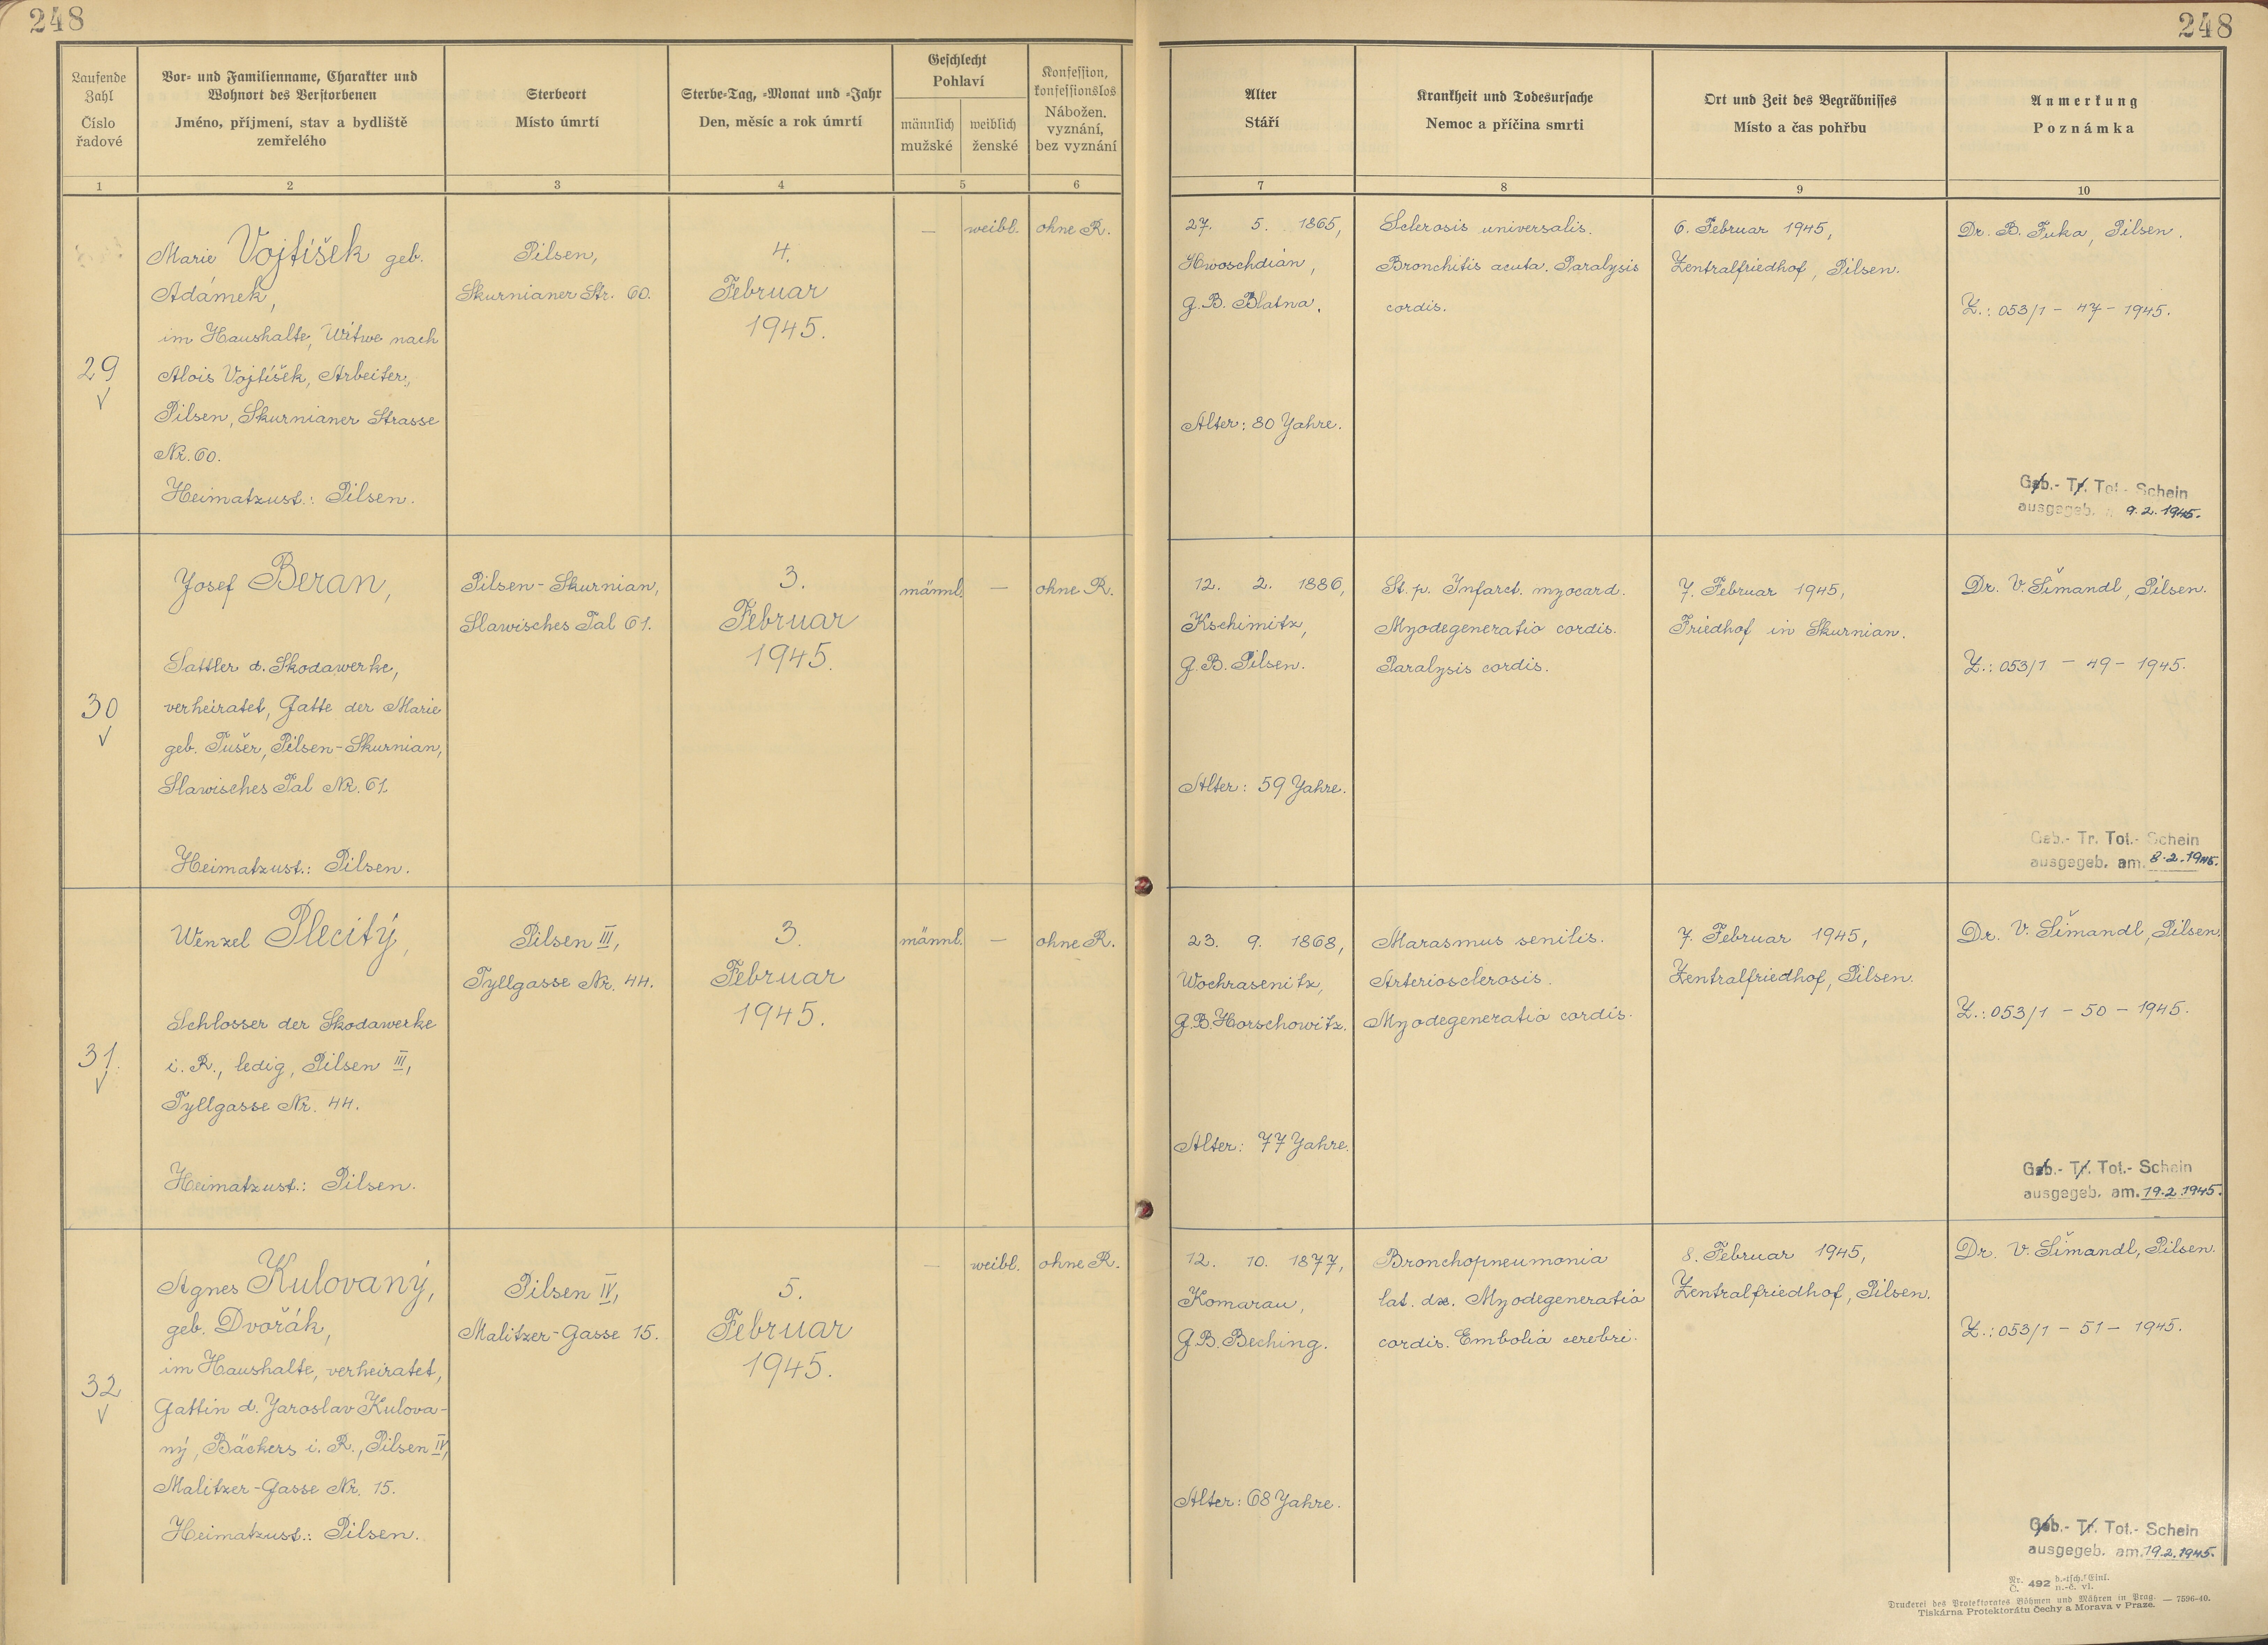 248
248
Laufende
Zahl
Číslo
řadové
Vor- und Familienname, Charakter und
Wohnort des Verstorbenen
Jméno, příjmení, stav a bydliště
zemřelého
Sterbeort
Místo úmrtí
Sterbe-Tag, -Monat und -Jahr
Den, měsíc a rok úmrtí
Geschlecht
Pohlaví
männlich
mužské
weiblich
ženské
Konfession,
konfessionslos
Nábožen.
vyznání,
bez vyznání
Alter
Stáří
Krankheit und Todesursache
Nemoc a příčina smrti
Ort und Zeit des Begräbnisses
Místo a čas pohřbu
Anmerkung
Poznámka
1
2
3
4
5
6
7
8
9
10
29
Marie Vojtíšek geb.
Adámek,
im Haushalte, Witwe nach
Alois Vojtíšek, Arbeiter,
Pilsen, Skurnianer Strasse
Nr. 60.
Heimatzust.: Pilsen.
Pilsen,
Skurnianer Str. 60.
4.
Februar
1945.
—
weibl.
ohne R.
27. 5. 1865,
Hwoschdian,
G.B. Blatna.
Alter: 80 Jahre.
Sclerosis universalis.
Bronchitis acuta. Paralysis
cordis.
6. Februar 1945,
Zentralfriedhof, Pilsen.
Dr. B. Fuka, Pilsen.
Z.: 053/1 - 47 - 1945.
Geb.- Tr. Tot.- Schein
ausgegeb. 9.2.1945.
30
Josef Beran,
Sattler d. Skodawerke,
verheiratet, Gatte der Marie
geb. Tušer, Pilsen-Skurnian,
Slawisches Tal Nr. 61.
Heimatzust.: Pilsen.
Pilsen-Skurnian,
Slawisches Tal 61.
3.
Februar
1945.
männl.
—
ohne R.
12. 2. 1886,
Kschimitz,
G.B. Pilsen.
Alter: 59 Jahre.
St. p. Infarct. myocard.
Myodegeneratio cordis.
Paralysis cordis.
7. Februar 1945,
Friedhof in Skurnian.
Dr. V. Šimandl, Pilsen.
Z.: 053/1 - 49 - 1945.
Geb.- Tr. Tot.- Schein
ausgegeb. am. 8.2.1945.
31.
Wenzel Plecitý,
Schlosser der Skodawerke
i. R., ledig, Pilsen III,
Tyllgasse Nr. 44.
Heimatzust.: Pilsen.
Pilsen III,
Tyllgasse Nr. 44.
3.
Februar
1945.
männl.
—
ohne R.
23. 9. 1868,
Wochrasenitz,
G.B. Horschowitz.
Alter: 77 Jahre.
Marasmus senilis.
Arteriosclerosis.
Myodegeneratio cordis.
7. Februar 1945,
Zentralfriedhof, Pilsen.
Dr. V. Šimandl, Pilsen.
Z.: 053/1 - 50 - 1945.
Geb.- Tr. Tot.- Schein
ausgegeb. am. 19.2.1945.
32
Agnes Kulovaný,
geb. Dvořák,
im Haushalte, verheiratet,
Gattin d. Jaroslav Kulova-
ný, Bäckers i. R., Pilsen IV,
Malitzer-Gasse Nr. 15.
Heimatzust.: Pilsen.
Pilsen IV,
Malitzer-Gasse 15.
5.
Februar
1945.
—
weibl.
ohne R.
12. 10. 1877,
Komarau,
G.B. Beching.
Alter: 68 Jahre.
Bronchopneumonia
lat. dx. Myodegeneratio
cordis. Embolia cerebri.
8. Februar 1945,
Zentralfriedhof, Pilsen.
Dr. V. Šimandl, Pilsen.
Z.: 053/1 - 51 - 1945.
Geb.- Tr. Tot.- Schein
ausgegeb. am. 19.2.1945.
Nr. Č. 492 d.-tsch. Einl. n.-č. vl.
Druckerei des Protektorates Böhmen und Mähren in Prag. — 7596-40.
Tiskárna Protektorátu Čechy a Morava v Praze.